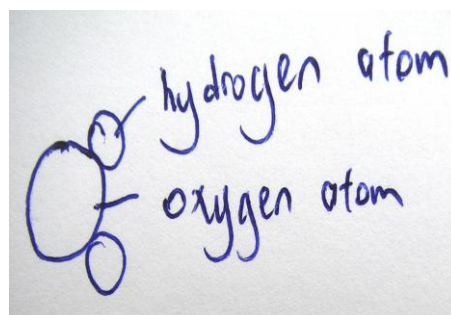 hydrogen atom
oxygen atom